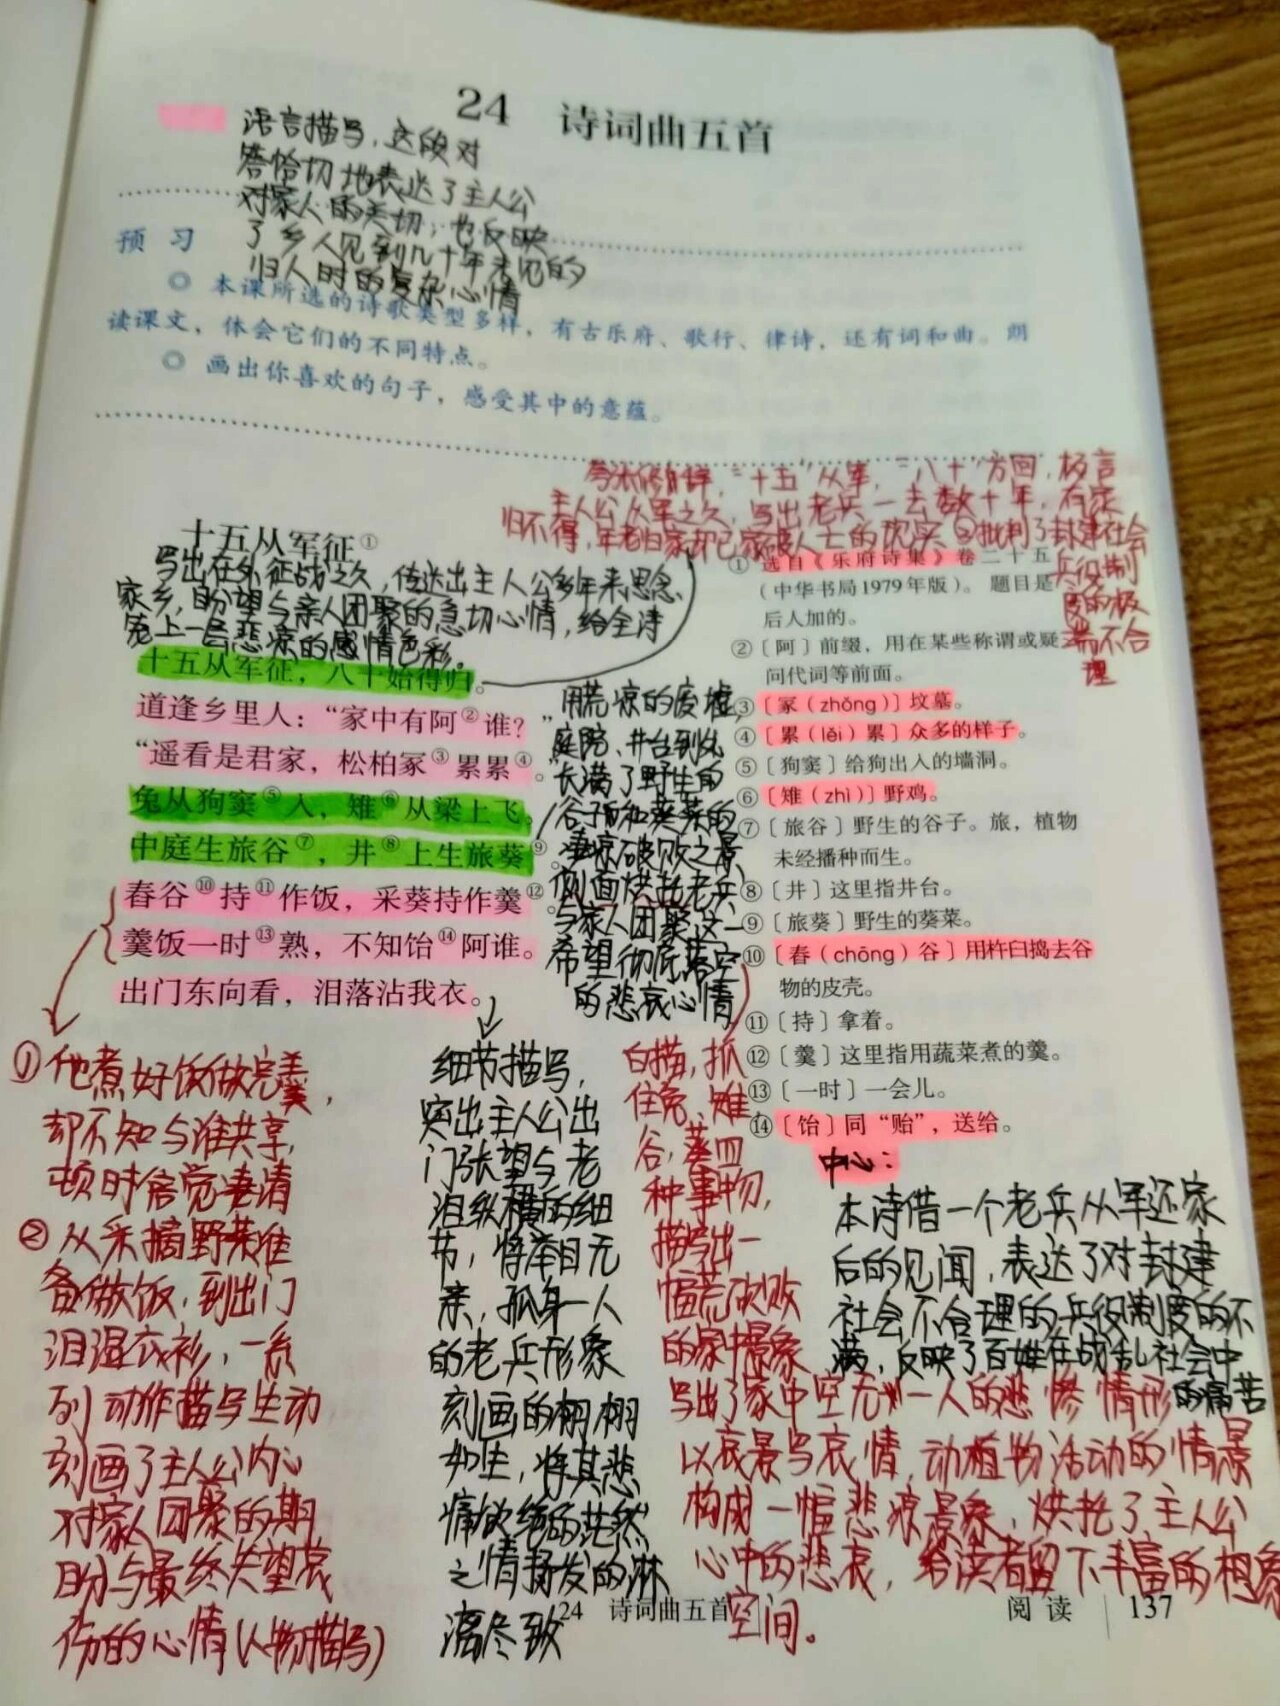 24 诗词曲五首
语言描写，这段对
答恰切地表达了主人公
对家人的关切，也反映
了乡人见到几十年未见的
归人时的复杂心情
预 习
◎ 本课所选的诗歌类型多样，有古乐府、歌行、律诗，还有词和曲。朗
读课文，体会它们的不同特点。
◎ 画出你喜欢的句子，感受其中的意蕴。
"十五"从军，"八十"方回，极言
主人公从军之久，写出老兵一去数十年，有家
归不得，年老归家却已家破人亡的现实 ②批判了封建社会
兵役制
度的极
端不合
理
十五从军征①
写出在外征战之久，传达出主人公多年来思念
家乡，盼望与亲人团聚的急切心情，给全诗
笼上一层悲凉的感情色彩。
十五从军征，八十始得归。
道逢乡里人：“家中有阿②谁？”
“遥看是君家，松柏冢③累累④。”
兔从狗窦⑤入，雉⑥从梁上飞。
中庭生旅谷⑦，井⑧上生旅葵⑨。
舂谷⑩持⑪作饭，采葵持作羹⑫。
羹饭一时⑬熟，不知饴⑭阿谁。
出门东向看，泪落沾我衣。
用荒凉的废墟，
庭院、井台到处
长满了野生的
谷子和葵菜的
凄凉破败之景
侧面烘托老兵
与家人团聚这一
希望彻底落空
的悲哀心情
① 选自《乐府诗集》卷二十五
（中华书局1979年版）。题目是
后人加的。
②〔阿〕前缀，用在某些称谓或疑
问代词等前面。
③〔冢（zhǒng）〕坟墓。
④〔累（léi）累〕众多的样子。
⑤〔狗窦〕给狗出入的墙洞。
⑥〔雉（zhì）〕野鸡。
⑦〔旅谷〕野生的谷子。旅，植物
未经播种而生。
⑧〔井〕这里指井台。
⑨〔旅葵〕野生的葵菜。
⑩〔舂（chōng）谷〕用杵臼捣去谷
物的皮壳。
⑪〔持〕拿着。
⑫〔羹〕这里指用蔬菜煮的羹。
⑬〔一时〕一会儿。
⑭〔饴〕同“贻”，送给。
① 他煮好饭做完羹，
却不知与谁共享，
顿时倍觉凄清
② 从采摘野菜准
备做饭，到出门
泪湿衣衫，一系
列动作描写生动
刻画了主人公内心
对家人团聚的期
盼与最终失望哀
伤的心情(人物描写)
细节描写，
突出主人公出
门张望与老
泪纵横的细
节，将举目无
亲，孤身一人
的老兵形象
刻画的栩栩
如生，将其悲
痛欲绝的茫然
之情抒发的淋
漓尽致
白描，抓
住兔、雉、
谷、葵四
种事物，
描写出一
幅荒凉破败
的家中景象
写出了家中空无一人的悲惨情形
以哀景写哀情，动植物活动的情景
构成一幅悲凉景象，烘托了主人公
心中的悲哀，给读者留下丰富的想象
空间。
中心：
本诗借一个老兵从军还家
后的见闻，表达了对封建
社会不合理的兵役制度的不
满，反映了百姓在战乱社会中
的痛苦
24 诗词曲五首
阅 读 137